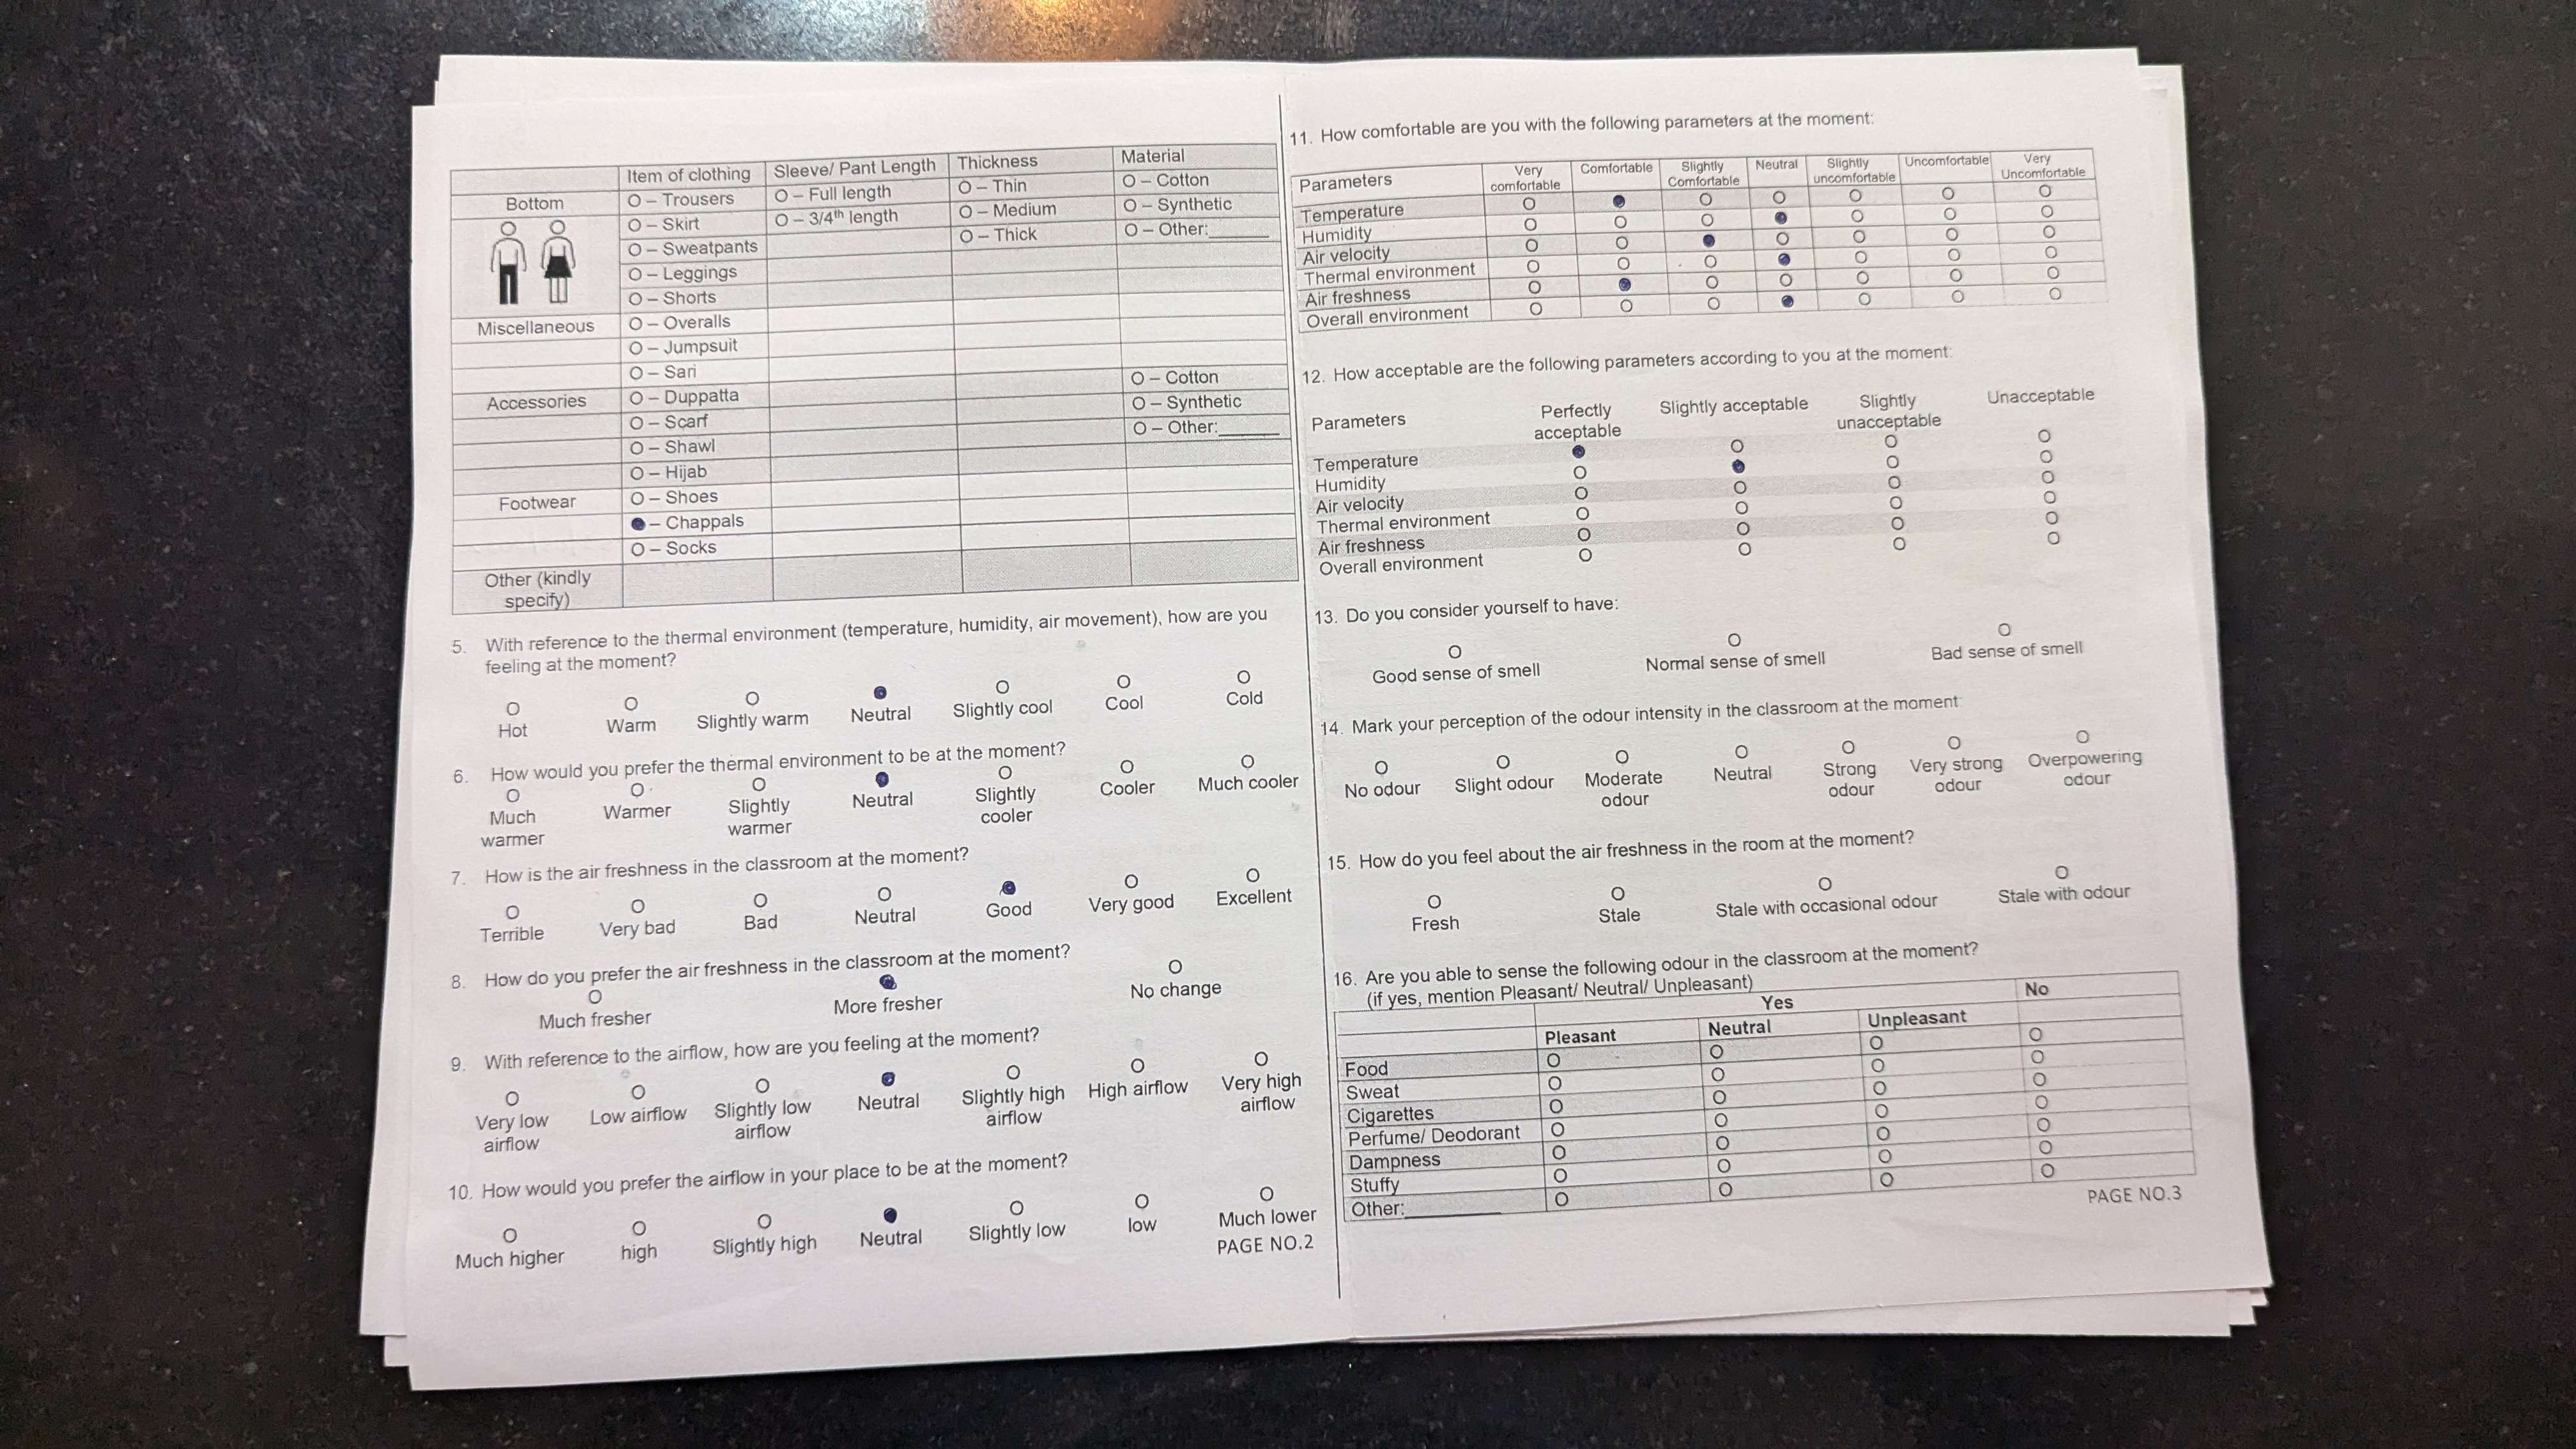 Item of clothing Sleeve/ Pant Length Thickness Material
Bottom O – Trousers O – Full length O – Thin O – Cotton
O – Skirt O – 3/4th length O – Medium O – Synthetic
O – Sweatpants O – Thick O – Other:______
O – Leggings
O – Shorts
Miscellaneous O – Overalls
O – Jumpsuit
O – Sari
Accessories O – Duppatta O – Cotton
O – Scarf O – Synthetic
O – Shawl O – Other:______
O – Hijab
Footwear O – Shoes
● – Chappals
O – Socks
Other (kindly
specify)
5. With reference to the thermal environment (temperature, humidity, air movement), how are you
feeling at the moment?
O O O ● O O O
Hot Warm Slightly warm Neutral Slightly cool Cool Cold
6. How would you prefer the thermal environment to be at the moment?
O O O ● O O O
Much Warmer Slightly Neutral Slightly Cooler Much cooler
warmer warmer cooler
7. How is the air freshness in the classroom at the moment?
O O O O ● O O
Terrible Very bad Bad Neutral Good Very good Excellent
8. How do you prefer the air freshness in the classroom at the moment?
O ● O
Much fresher More fresher No change
9. With reference to the airflow, how are you feeling at the moment?
O O O ● O O O
Very low Low airflow Slightly low Neutral Slightly high High airflow Very high
airflow airflow airflow airflow
10. How would you prefer the airflow in your place to be at the moment?
O O O ● O O O
Much higher high Slightly high Neutral Slightly low low Much lower
PAGE NO.2
11. How comfortable are you with the following parameters at the moment:
Parameters Very Comfortable Slightly Neutral Slightly Uncomfortable Very
comfortable Comfortable uncomfortable Uncomfortable
Temperature O ● O O O O O
Humidity O O O ● O O O
Air velocity O O ● O O O O
Thermal environment O O O ● O O O
Air freshness O ● O O O O O
Overall environment O O O ● O O O
12. How acceptable are the following parameters according to you at the moment:
Parameters Perfectly Slightly acceptable Slightly Unacceptable
acceptable unacceptable
Temperature ● O O O
Humidity O ● O O
Air velocity O O O O
Thermal environment O O O O
Air freshness O O O O
Overall environment O O O O
13. Do you consider yourself to have:
O O O
Good sense of smell Normal sense of smell Bad sense of smell
14. Mark your perception of the odour intensity in the classroom at the moment:
O O O O O O O
No odour Slight odour Moderate Neutral Strong Very strong Overpowering
odour odour odour odour
15. How do you feel about the air freshness in the room at the moment?
O O O O
Fresh Stale Stale with occasional odour Stale with odour
16. Are you able to sense the following odour in the classroom at the moment?
(if yes, mention Pleasant/ Neutral/ Unpleasant)
Yes No
Pleasant Neutral Unpleasant
Food O O O O
Sweat O O O O
Cigarettes O O O O
Perfume/ Deodorant O O O O
Dampness O O O O
Stuffy O O O O
Other:__________ O O O O
PAGE NO.3